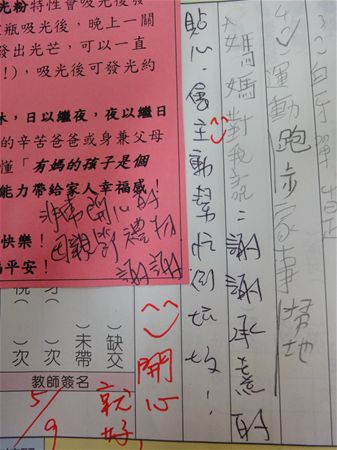 光粉特性會吸光後發
瓶吸光後，晚上一關
發出光芒，可以一直
！），吸光後可發光約
，日以繼夜，夜以繼日
的辛苦爸爸或身兼父母
懂「有媽的孩子是個
能力帶給家人幸福感！
快樂！
平安！
非常開心的
母親節禮物
謝謝
運動跑步 家事掃地
媽媽對我說：謝謝承意的
貼心，會主動幫忙倒垃圾！
開心
就好
缺交（
未帶（
）次
）次
教師簽名
5/9